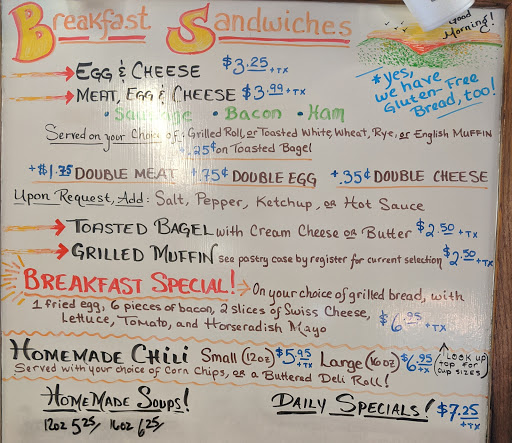 Breakfast Sandwiches
Good Morning!
EGG & CHEESE $3.25 +TX
MEAT, EGG & CHEESE $3.99 +TX
• Sausage • Bacon • Ham
*yes, we have Gluten-Free Bread, too!
Served on your Choice of: Grilled Roll, or Toasted White, Wheat, Rye, or English MUFFIN
+.25¢ on Toasted Bagel
+$1.75 DOUBLE MEAT +.75¢ DOUBLE EGG +.35¢ DOUBLE CHEESE
Upon Request, Add: Salt, Pepper, Ketchup, or Hot Sauce
TOASTED BAGEL with Cream Cheese or Butter $2.50 +TX
GRILLED MUFFIN see pastry case by register for current selection $2.50 +TX
BREAKFAST SPECIAL! On your choice of grilled bread, with
1 fried egg, 6 pieces of bacon, 2 slices of Swiss Cheese,
Lettuce, Tomato, and Horseradish Mayo $6.95 +TX
HOMEMADE CHILI Small (12oz) $5.95 +TX Large (16oz) $6.95 +TX (LOOK up top for cup SIZES)
Served with your choice of Corn Chips, or a Buttered Deli Roll!
HOMEMADE SOUPS! DAILY SPECIALS! $7.25 +TX
12oz 5.25 16oz 6.25